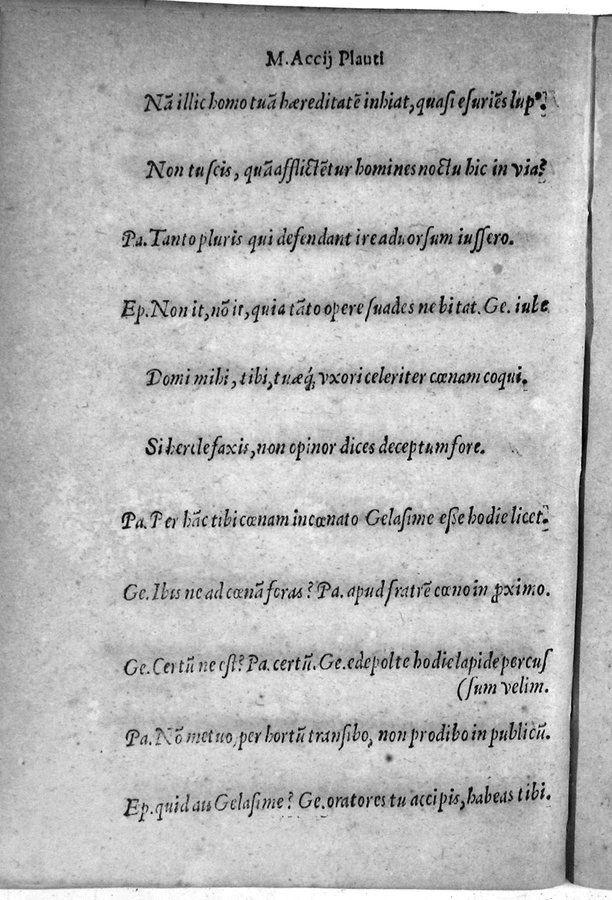 M. Accij Plauti
Nā illic homo tuā hæreditatē inhiat, quasi esuriēs lupꝰ.
Non tu scis, quā afflictētur homines noctu hic in via?
Pa. Tanto pluris qui defendant ire aduorsum iussero.
Ep. Non it, nō it, quia tāto opere suades ne bitat. Ge. iube
Domi mihi, tibi, tuæq́; vxori celeriter cœnam coqui.
Si hercle faxis, non opinor dices deceptum fore.
Pa. Per hāc tibi cœnam incœnato Gelasime eſse hodie licet.
Ge. Ibis ne ad cœnā foras? Pa. apud fratrē cœno in ꝓximo.
Ge. Certū ne est? Pa. certū. Ge. edepol te hodie lapide percus
(sum velim.
Pa. Nō metuo, per hortū transibo, non prodibo in publicū.
Ep. quid au Gelasime? Ge. oratores tu accipis, habeas tibi.